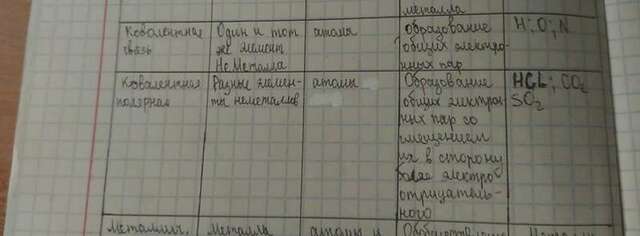 металла
Ковалентная связь
Один и тот же элемент Не Металла
атомы
образование общих электронных пар
H; O; N
Ковалентная полярная
Разные элементы неметаллов
атомы
Образование общих электронных пар со смещением их в сторону более электроотрицательного
HCL; CO2 SO2
Металлич.
Металла
атомы и